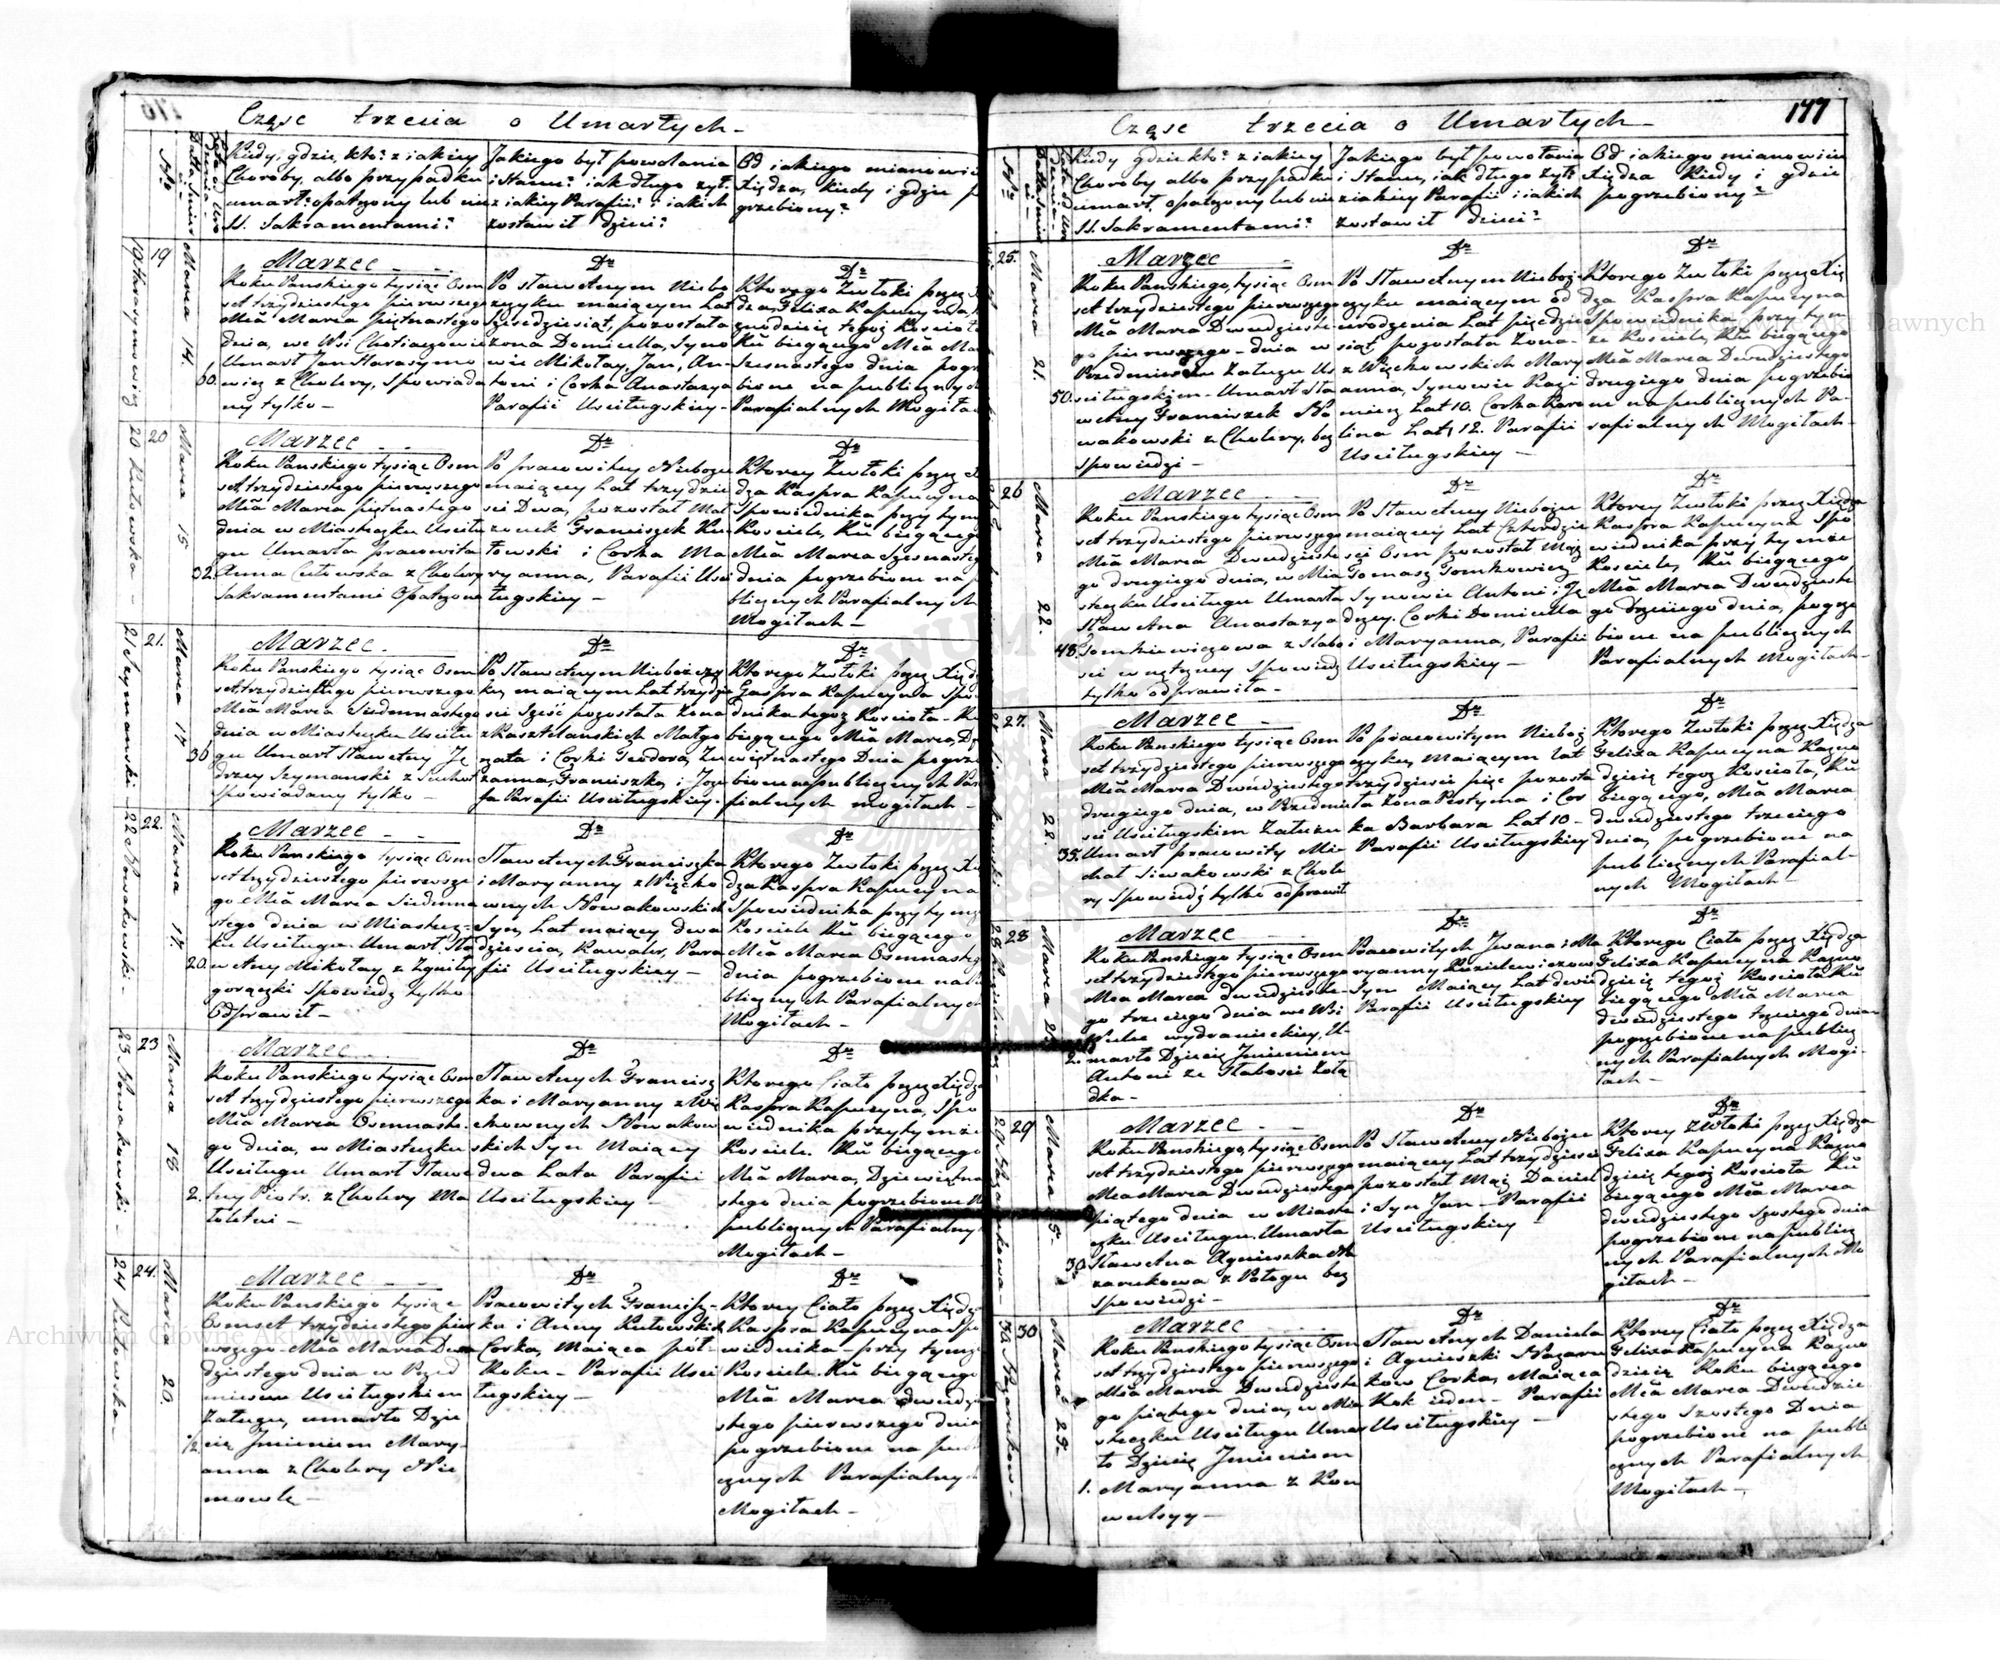 Częsc trzecia o Umarłych
Kiedy, gdzie, kto? z iakiey
Choroby, albo przypadku
umarł? opatrzony lub nie
SS. Sakramentami?
Jakiego był powołania
i Stanu? iak długo żył?
z iakiey Parafii? i iakich
zostawił dzieci?
Od iakiego mianowi
Xiędza, kiedy i gdzie p
grzebiony?
19
Marca 14.
60.
Marzec
Roku Panskiego tysiąc Osm
set trzydziestego pierwszego
Mca Marca piętnastego
dnia, we Wsi
Umarł Jan Harasymo
wicz z Cholery, Spowiada
ny tylko
Dn
Po sławetnym Niebo
szczyku maiącym Lat
Szesdziesiąt, pozostała
żona Domicella, Syno
wie Mikołay, Jan, An
toni i Corka Anastazya
Parafii Usciługskiey
Dn
Ktorego Zwłoki przez
dza Felixa Kapucyna,
znodzieię tegoż Kościoł
Ku biegącego Mca Ma
Szesnastego dnia pogr
bione na publicznych
Parafialnych Mogiła
20
Marca 15
32.
Marzec
Roku Panskiego tysiąc Osm
set trzydziestego pierwszego
Mca Marca piętnastego
dnia w Miasteczku Usciłu
gu Umarła pracowita
Anna Kutowska z Cholery
Sakramentami Opatrzona
Dn
Po pracowitey Nieboszcz
maiącey Lat trzydzie
sci Dwa, pozostał Mał
żonek Franciszek Ku
towski i Corka Ma
ryanna, Parafii Usci
ługskiey
Dn
Ktorey Zwłoki przez X
dza Kaspra Kapucyna
Spowiednika przy tym
Kościele, Ku biegącego
Mca Marca Szesnasteg
dnia pogrzebione na p
blicznych Parafialnych
Mogiłach
21.
Marca 17
36
Marzec
Roku Panskiego tysiąc Osm
set trzydziestego pierwszego
Mca Marca Siedmnastego
dnia w Miasteczku Usciłu
gu Umarł Sławetny Ję
drzey Szymanski z Suchot
Spowiadany tylko
Dn
Po Sławetnym Nieboszczy
ku, maiącym Lat trzydzie
sci Sześć pozostała Żona
z Kasztelanskich Małgo
rzata i Corki Teodora, Zu
zanna, Franciszka, i Joze
fa Parafii Usciługskiey.
Dn
Ktorego Zwłoki przez Xiędz
Gaspra Kapucyna Spo
dnika tegoż Kościoła
biegącego Mca Marca, Dz
więtnastego Dnia pogrze
bione na publicznych Par
fialnych mogiłach
22.
Marca 17.
20.
Marzec
Roku Panskiego tysiąc Osm
set trzydziestego pierwsze
go Mca Marca Siedmna
stego dnia w Miastecz
ku Usciługu. Umarł Sła
wetny Mikołay z Zgniłey
gorączki Spowiedz tylko
Odprawił
Dn
Sławetnych Franciszka
i Maryanny z Więcko
wnych Nowakowskich
Syn, Lat maiący dwa
dziescia, Kawaler, Para
fii Usciługskiey
Dn
Ktorego Zwłoki przez Xi
dza Kaspra Kapucyna
Spowiednika przy tymże
Kościele Ku biegącego
Mca Marca Osmnasteg
dnia pogrzebione na
blicznych Parafialnych
Mogiłach
23
Marca 18
2.
Marzec
Roku Panskiego tysiąc Osm
set trzydziestego pierwszego
Mca Marca Osmnaste
go dnia, w Miasteczku
Usciługu Umarł Sławe
tny Piotr z Cholery Ma
łoletni
Dn
Sławetnych Francisz
ka i Maryanny z Wię
ckownych Nowakow
skich Syn Maiący
dwa Lata Parafii
Usciługskiey
Dn
Ktorego Ciało przez Xiędz
Kaspra Kapucyna, Spo
wiednika przy tymże
Kościele. Ku biegącego
Mca Marca, Dziewiętna
stego dnia pogrzebione
publicznych Parafialny
Mogiłach
24.
Marca 20.
1/2.
Marzec
Roku Panskiego tysiąc
Osmset trzydziestego pier
wszego Mca Marca Dwu
dziestego dnia w Przed
miesciu Usciługskiem
Załugu, umarło Dzie
cię Jmieniem Mary
anna z Cholery Nie
mowlę
Dn
Pracowitych Francisz
ka i Anny Kutowskich
Corka, Maiąca pół
Roku Parafii Usci
ługskiey
Dn
Ktorey Ciało przez Xiędz
Kaspra Kapucyna Spo
wiednika przy tymże
Kościele. Ku biegącego
Mca Marca dwudzie
stego pierwszego dnia
pogrzebione na publi
cznych Parafialnych
Mogiłach
177
Częsc trzecia o Umarłych
Kiedy gdzie kto? z iakiey
Choroby albo przypadku
umarł, opatrzony lub nie
SS. Sakramentami?
Jakiego był powołania
i Stanu, iak długo żył?
z iakiey Parafii i iakich
zostawił dzieci?
Od iakiego mianowicie
Xiędza Kiedy i gdzie
pogrzebiony?
25.
Marca 21.
50.
Marzec
Roku Panskiego, tysiąc Osm
set trzydziestego pierwszego
Mca Marca Dwudzieste
go pierwszego dnia w
Przedmiesciu Załugu Us
ciługskiem Umarł Sła
wetny Franciszek No
wakowski z Cholery, bez
Spowiedzi
Dn
Po Sławetnym Niebosz
czyku maiącym od
urodzenia Lat pięcdzie
siąt pozostała Żona
z Więckowskich Mary
anna, Synowie Kazi
mierz Lat 10. Corka Karo
lina Lat 12. Parafii
Usciługskiey
Dn
Ktorego Zwłoki przez Xię
dza Kaspra Kapucyna
Spowiednika, przy tym
że Kościele, Ku biegącego
Mca Marca Dwudziestego
drugiego dnia pogrzebio
ne na publicznych Pa
rafialnych Mogiłach
26
Marca 22.
48.
Marzec
Roku Panskiego tysiąc Osm
set trzydziestego pierwszego
Mca Marca Dwudzieste
go drugiego dnia, w Mia
steczku Usciługu Umarła
Sławetna Anastazya
Tomkiewiczowa z Słabo
sci wnętrzney Spowiedz
tylko odprawiła
Dn
Po Sławetney Nieboszcz
maiącey Lat Czterdzie
sci Osm pozostał Mąż
Tomasz Tomkowicz
Synowie Antoni i Ję
drzey. Corki Domicella
i Maryanna, Parafii
Usciługskiey
Dn
Ktorey Zwłoki przez Xiędza
Kaspra Kapucyna Spo
wiednika przy tymże
Kościele, Ku biegącego
Mca Marca Dwudzieste
go dnia, pogrze
bione na publicznych
Parafialnych Mogiłach
27.
Marca 22.
35.
Marzec
Roku Panskiego tysiąc Osm
set trzydziestego pierwszego
Mca Marca Dwudziestego
drugiego dnia, w Przedmie
sciu Usciługskim Załugu
Umarł pracowity Mi
chał Siwakowski z Chole
ry Spowiedź tylko odprawił
Dn
Po pracowitym Niebosz
czyku, Maiącym lat
trzydziesci pięc pozosta
ła żona Justyna i Cor
ka Barbara Lat 10
Parafii Usciługskiey
Dn
Ktorego Zwłoki przez Xiędza
Felixa Kapucyna Kazno
dzieię tegoż Kościoła, Ku
biegącego, Mca Marca
dwudziestego trzeciego
dnia, pogrzebione na
publicznych Parafial
nych Mogiłach
28
Marca 23
2.
Marzec
Roku Panskiego tysiąc Osm
set trzydziestego pierwszego
Mca Marca dwudzieste
go trzeciego dnia we Wsi
Wulce wydranieckiey, U
marło Dziecię Jmieniem
Antoni ze Słabosci Żołą
dka
Dn
Pracowitych Jwana i Ma
ryanny Kozielewiczow
Syn Maiący Lat dwie
Parafii Usciługskiey
Dn
Ktorego Ciało przez Xiędza
Felixa Kapucyna Kazno
dzieię tegoż Kościoła Ku
biegącego Mca Marca
dwudziestego trzeciego dnia
pogrzebione na publicz
nych Parafialnych Mogi
łach
29
Marca 25
30.
Marzec
Roku Panskiego, tysiąc Osm
set trzydziestego pierwszego
Mca Marca Dwudziestego
piątego dnia w Miaste
czku Usciługu. Umarła
Sławetna Agnieszka Na
zarukowa z Połogu bez
Spowiedzi
Dn
Po Sławetney Nieboszcz
maiącey Lat trzydziesci
pozostał Mąż Daniel
i Syn Jan Parafii
Usciługskiey
Dn
Ktorey Zwłoki przez Xiędza
Felixa Kapucyna Kazno
dzieię tegoż Kościoła Ku
biegącego Mca Marca
dwudziestego Szostego dnia
pogrzebione na publicz
nych Parafialnych Mo
giłach
30
1.
Marzec
Roku Panskiego tysiąc Osm
set trzydziestego pierwszego
Mca Marca Dwudzieste
go piątego dnia, w Mia
steczku Usciługu Umar
ło Dziecię Jmieniem
Maryanna z Kon
wulsyy
Dn
Sławetnych Daniela
i Agnieszki Nazaru
kow Corka, Maiąca
Rok ieden Parafii
Usciługskiey
Dn
Ktorey Ciało przez Xiędza
Felixa Kapucyna Kazno
dzieię Roku biegącego
Mca Marca Dwudzie
stego Szostego Dnia
pogrzebione na publi
cznych Parafialnych
Mogiłach
Archiwum Główne Akt Dawnych
Archiwum Główne Akt Dawnych